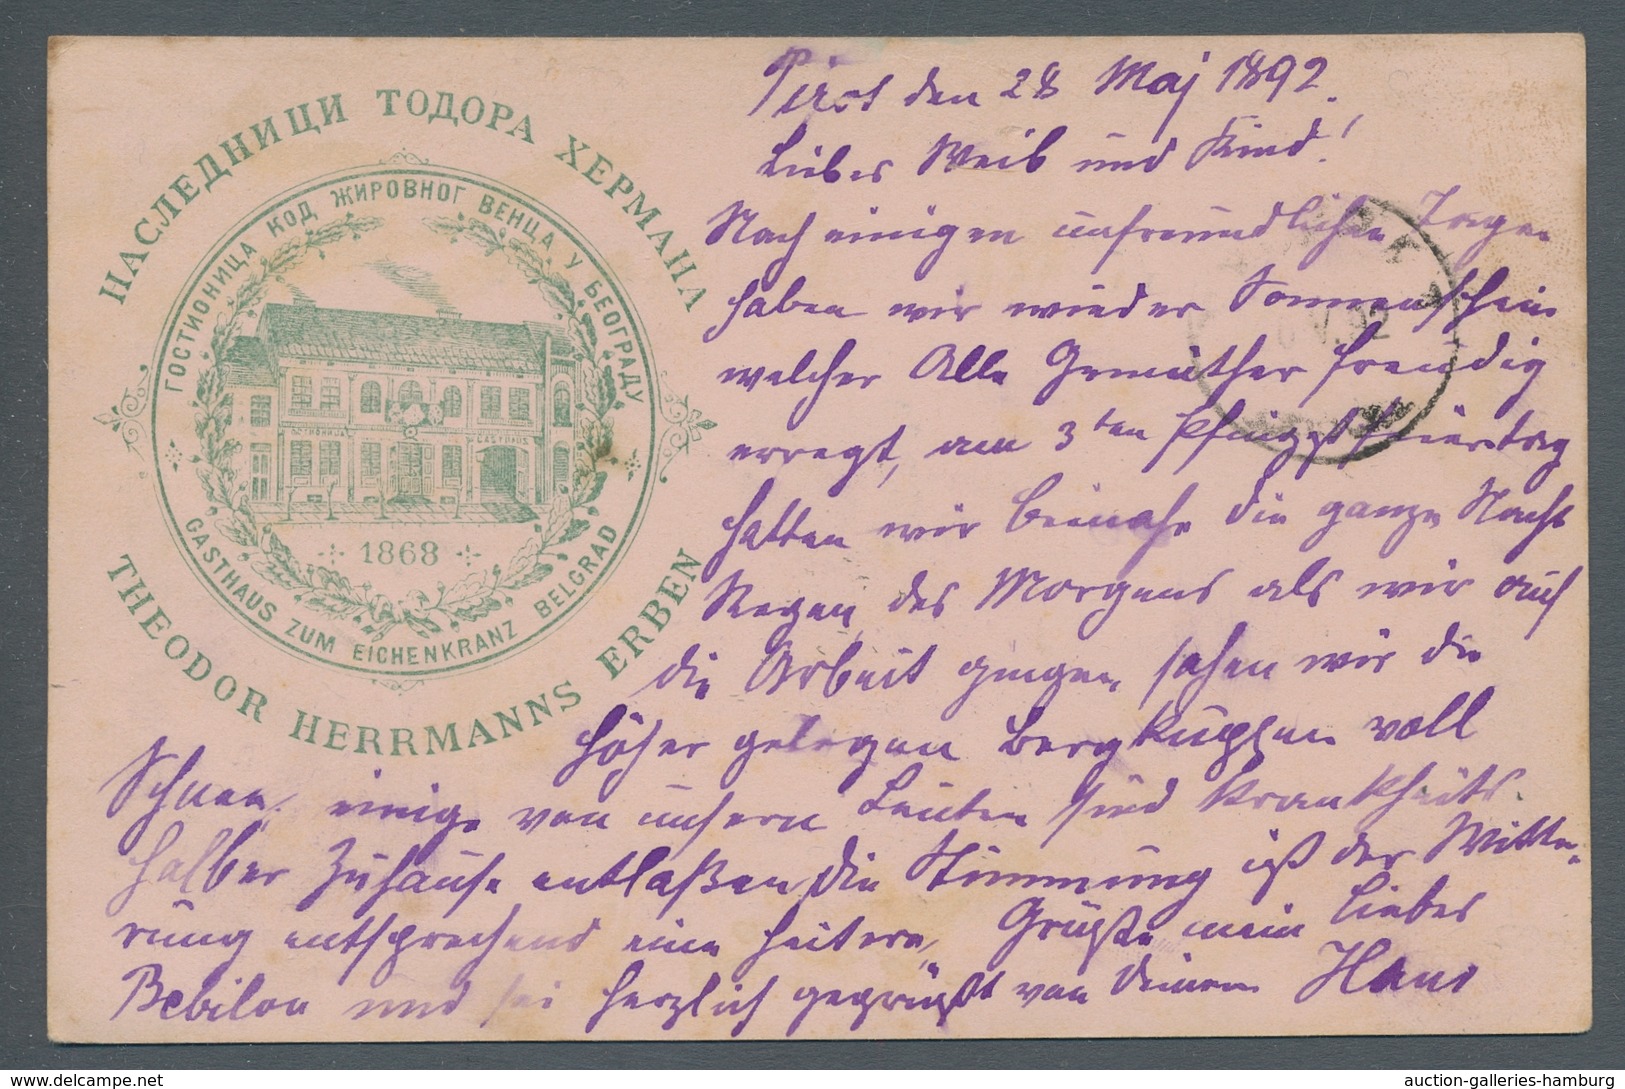 НАСЛЕДНИЦИ ТОДОРА ХЕРМАНА
ГОСТИОНИЦА КОД ЖИРОВНОГ ВЕНЦА У БЕОГРАДУ
GASTHAUS
1868
GASTHAUS ZUM EICHENKRANZ BELGRAD
THEODOR HERRMANNS ERBEN
Pirot den 28 Maj 1892.
Liebes Weib und Kind!
Nach einigen unfreundlichen Tagen
haben wir wieder Sonnenschein
welcher Alle Gemüther freudig
erregt, am 3ten Pfingstfeiertag
hatten wir beinahe die ganze Nacht
Regen, des Morgens als wir auf
die Arbeit gingen, sahen wir die
höher gelegen Bergkuppen voll
Schnee, einige von unsern Leuten sind Krankheits
halber Zuhause entlaßen, die Stimmung ist der Witte-
rung entsprechend eine heitere, Grüße mein liebes
Bebilon und sei herzlich gegrüßt von Deinem Hans
V.92
auction-galleries-hamburg